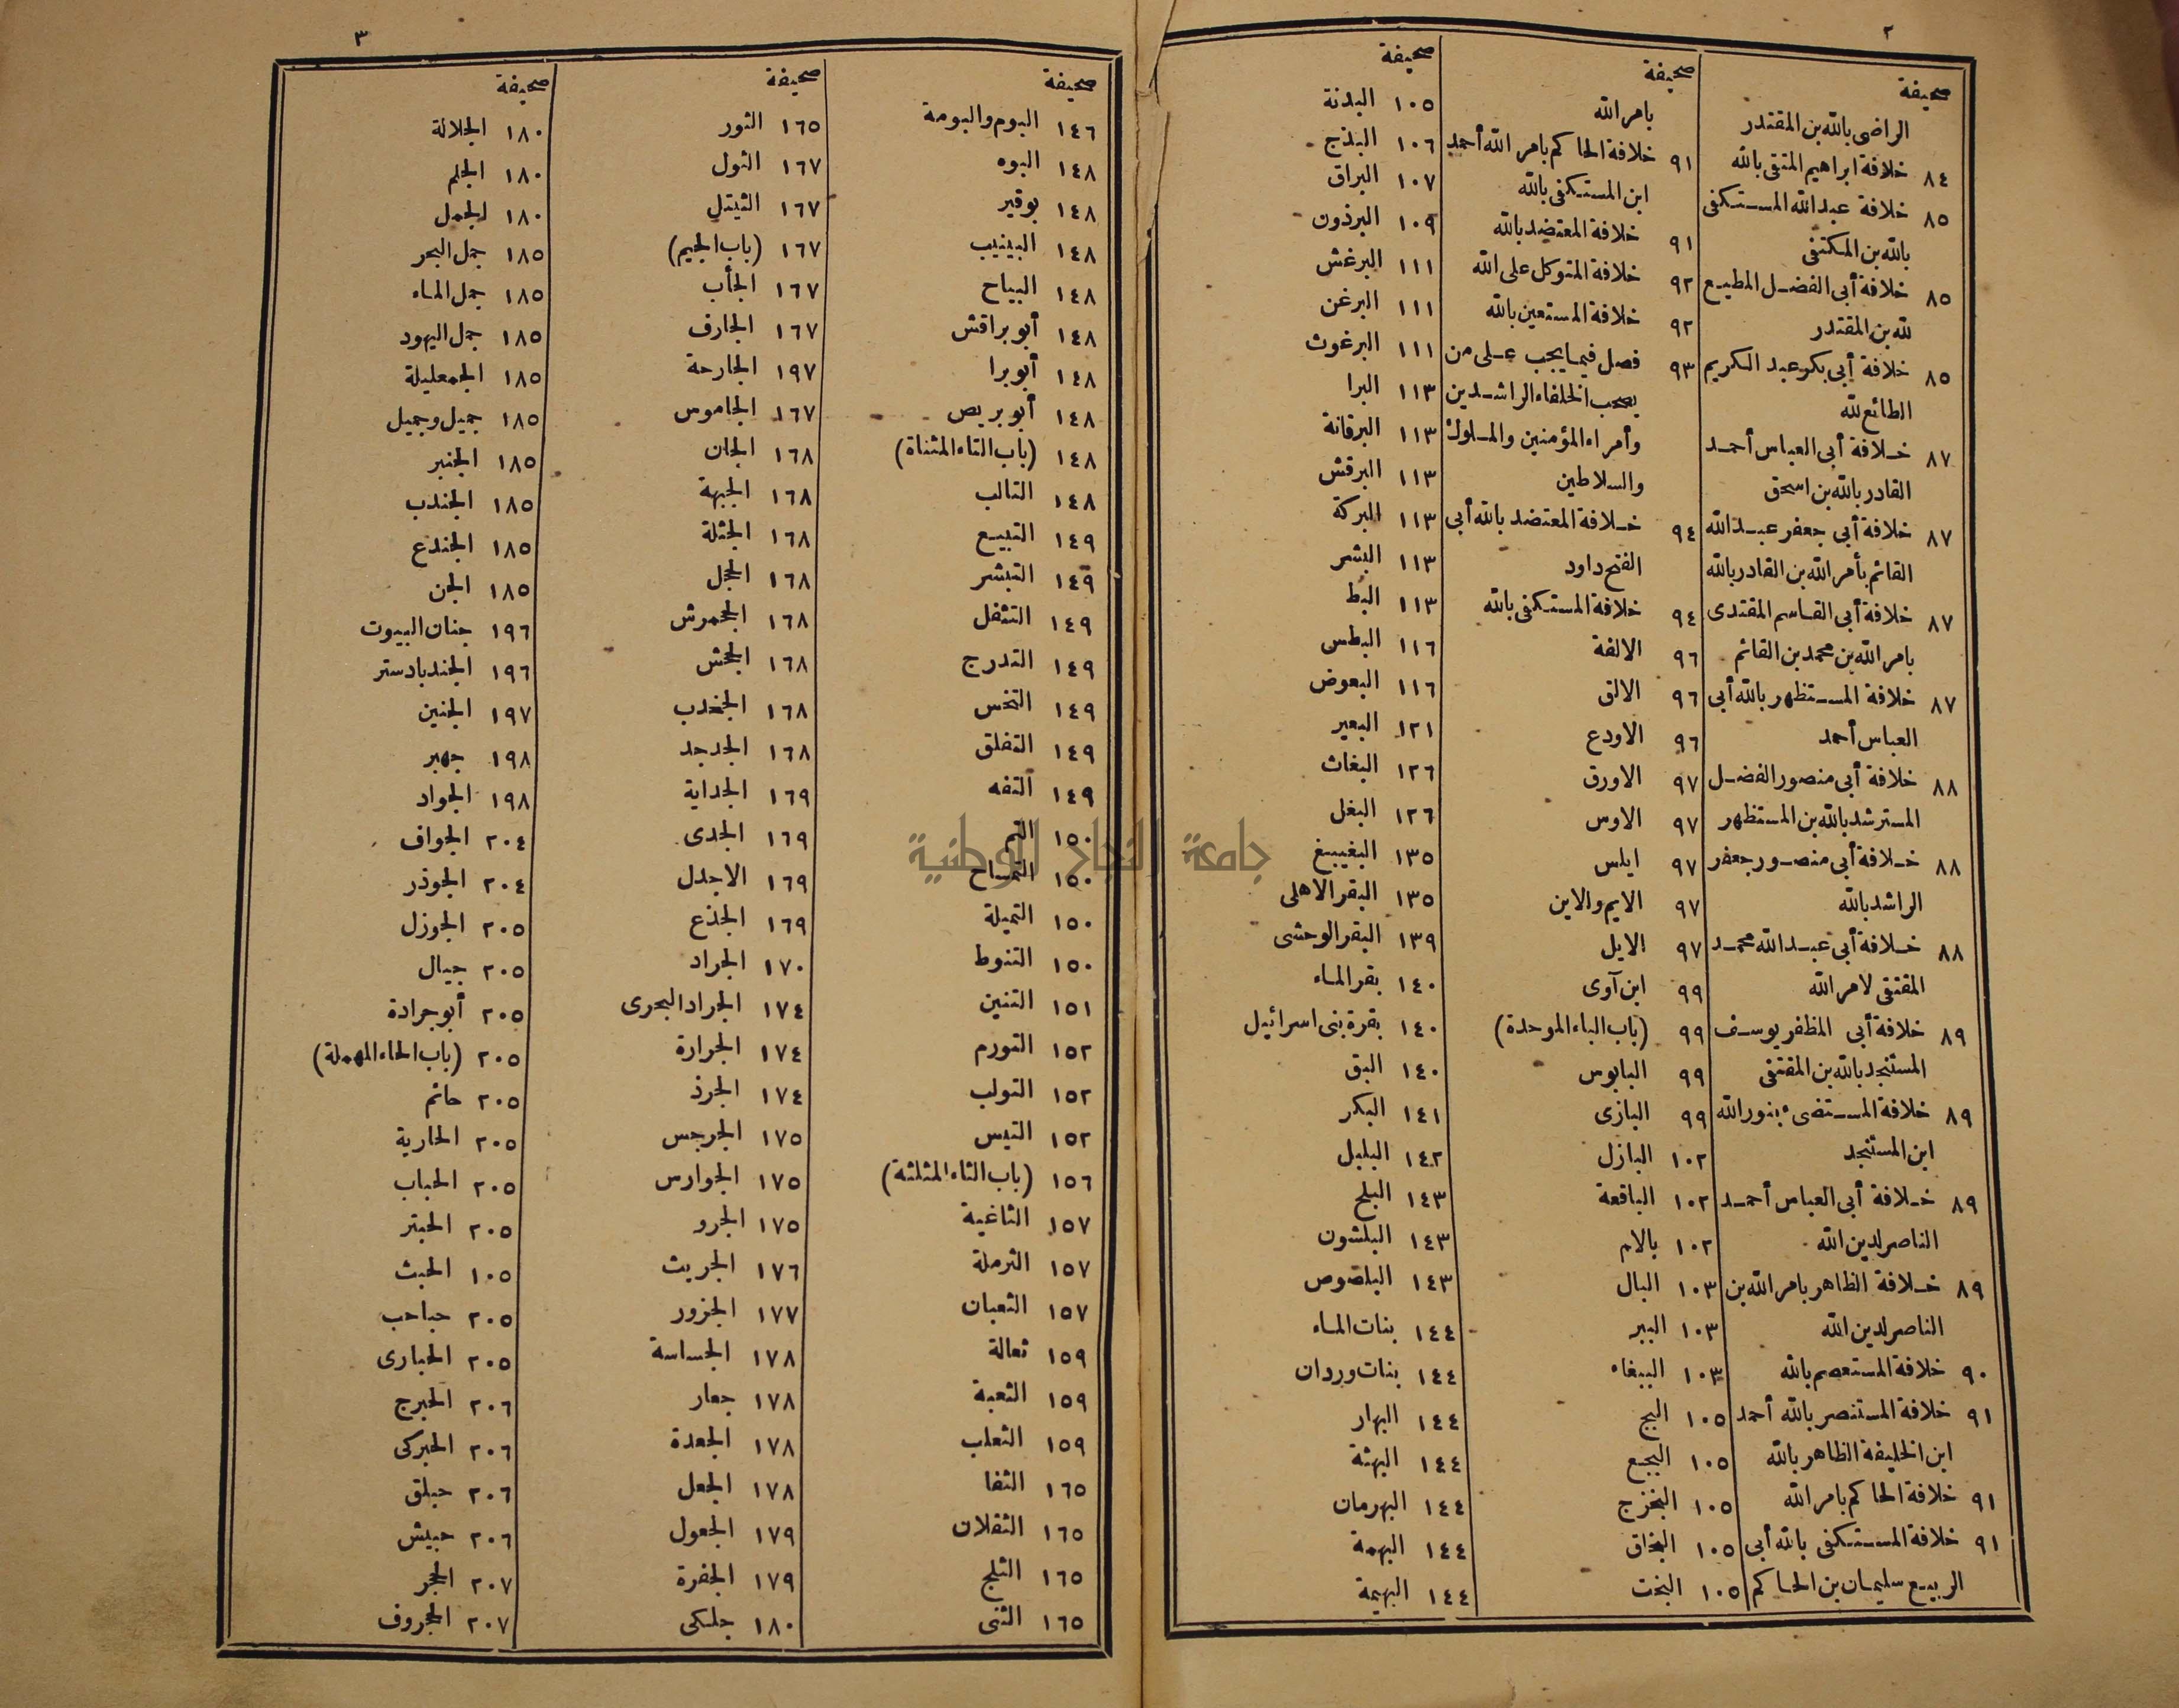 ٢
صحيفة
الراضى بالله بن المقتدر
٨٤ خلافة ابراهيم المتقى بالله
٨٥ خلافة عبد الله المستكفى
بالله بن المكتفى
٨٥ خلافة أبى الفضل المطيع
لله بن المقتدر
٨٥ خلافة أبى بكر عبد الكريم
الطائع لله
٨٧ خلافة أبى العباس أحمد
القادر بالله بن اسحق
٨٧ خلافة أبى جعفر عبد الله
القائم بأمر الله بن القادر بالله
٨٧ خلافة أبى القاسم المقتدى
بامر الله بن محمد بن القائم
٨٧ خلافة المستظهر بالله أبى
العباس أحمد
٨٨ خلافة أبى منصور الفضل
المسترشد بالله بن المستظهر
٨٨ خلافة أبى منصور جعفر
الراشد بالله
٨٨ خلافة أبى عبد الله محمد
المقتفى لامر الله
٨٩ خلافة أبى المظفر يوسف
المستنجد بالله بن المقتفى
٨٩ خلافة المستضىء بنور الله
ابن المستنجد
٨٩ خلافة أبى العباس أحمد
الناصر لدين الله
٨٩ خلافة الظاهر بامر الله بن
الناصر لدين الله
٩٠ خلافة المستعصم بالله
٩١ خلافة المستنصر بالله أحمد
ابن الخليفة الظاهر بالله
٩١ خلافة الحاكم بامر الله
٩١ خلافة المستكفى بالله أبى
الربيع سليمان بن الحاكم
صحيفة
بامر الله
٩١ خلافة الحاكم بامر الله أحمد
ابن المستكفى بالله
٩١ خلافة المعتضد بالله
٩٢ خلافة المتوكل على الله
٩٢ خلافة المستعين بالله
٩٣ فصل فيما يجب على من
يصحب الخلفاء الراشدين
وأمراء المؤمنين والملوك
والسلاطين
٩٤ خلافة المعتضد بالله أبى
الفتح داود
٩٤ خلافة المستكفى بالله
٩٦ الالفة
٩٦ الالق
٩٦ الاودع
٩٧ الاورق
٩٧ الاوس
٩٧ ايلس
٩٧ الايم والاين
٩٧ الايل
٩٩ ابن آوى
٩٩ (باب الباء الموحدة)
٩٩ البابوس
٩٩ البازى
١٠٢ البازل
١٠٢ الباقعة
١٠٢ بالام
١٠٣ البال
١٠٣ الببر
١٠٣ الببغاء
١٠٥ البج
١٠٥ البجع
١٠٥ البخزج
١٠٥ البخاق
١٠٥ البخت
صحيفة
١٠٥ البدنة
١٠٦ البذج
١٠٧ البراق
١٠٩ البرذون
١١١ البرغش
١١١ البرغن
١١١ البرغوث
١١٣ البرا
١١٣ البرقانة
١١٣ البرقش
١١٣ البركة
١١٣ البشر
١١٣ البط
١١٦ البطس
١١٦ البعوض
١٢١ البعير
١٢٦ البغاث
١٢٦ البغل
١٣٥ البغيبغ
١٣٥ البقر الاهلى
١٣٩ البقر الوحشى
١٤٠ بقر الماء
١٤٠ بقرة بنى اسرائيل
١٤٠ البق
١٤١ البكر
١٤٢ البلبل
١٤٣ البلح
١٤٣ البلشون
١٤٣ البلصوص
١٤٤ بنات الماء
١٤٤ بنات وردان
١٤٤ البهار
١٤٤ البهثة
١٤٤ البهرمان
١٤٤ البهمة
١٤٤ البهيمة
٣
صحيفة
١٤٦ البوم والبومة
١٤٨ البوه
١٤٨ بوقير
١٤٨ البينيب
١٤٨ البياح
١٤٨ أبو براقش
١٤٨ أبو برا
١٤٨ أبو بريص
١٤٨ (باب التاء المثناة)
١٤٨ التالب
١٤٩ التبيع
١٤٩ التبشر
١٤٩ التثفل
١٤٩ التدرج
١٤٩ التخس
١٤٩ التفلق
١٤٩ التفه
١٥٠ التم
١٥٠ التمساح
١٥٠ التميلة
١٥٠ التنوط
١٥١ التنين
١٥٢ التورم
١٥٢ التولب
١٥٢ التيس
١٥٦ (باب الثاء المثلثة)
١٥٧ الثاغية
١٥٧ الثرملة
١٥٧ الثعبان
١٥٩ ثعالة
١٥٩ الثعبة
١٥٩ الثعلب
١٦٥ الثفا
١٦٥ الثقلان
١٦٥ الثلج
١٦٥ الثنى
صحيفة
١٦٥ الثور
١٦٧ الثول
١٦٧ الثيتل
١٦٧ (باب الجيم)
١٦٧ الجأب
١٦٧ الجارف
١٩٧ الجارحة
١٦٧ الجاموس
١٦٨ الجان
١٦٨ الجبهة
١٦٨ الجثلة
١٦٨ الجحل
١٦٨ الجحمرش
١٦٨ الجحش
١٦٨ الجخدب
١٦٨ الجدجد
١٦٩ الجداية
١٦٩ الجدى
١٦٩ الاجدل
١٦٩ الجذع
١٧٠ الجراد
١٧٤ الجراد البحرى
١٧٤ الجرارة
١٧٤ الجرذ
١٧٥ الجرجس
١٧٥ الجوارس
١٧٥ الجرو
١٧٦ الجريث
١٧٧ الجزور
١٧٨ الجساسة
١٧٨ جعار
١٧٨ الجعدة
١٧٨ الجعل
١٧٩ الجعول
١٧٩ الجفرة
١٨٠ جلكى
صحيفة
١٨٠ الجلالة
١٨٠ الجلم
١٨٠ الجمل
١٨٥ جمل البحر
١٨٥ جمل الماء
١٨٥ جمل اليهود
١٨٥ الجمعليلة
١٨٥ جميل وجميل
١٨٥ الجنبر
١٨٥ الجندب
١٨٥ الجندع
١٨٥ الجن
١٩٦ جنان البيوت
١٩٦ الجندبادستر
١٩٧ الجنين
١٩٨ جهبر
١٩٨ الجواد
٢٠٤ الجواف
٢٠٤ الجوذر
٢٠٥ الجوزل
٢٠٥ جيال
٢٠٥ أبو جرادة
٢٠٥ (باب الحاء المهملة)
٢٠٥ حاتم
٢٠٥ الحارية
٢٠٥ الحباب
٢٠٥ الحبتر
١٠٥ الحبث
٢٠٥ حباحب
٢٠٥ الحبارى
٢٠٦ الحبرج
٢٠٦ الحبركى
٢٠٦ حبلق
٢٠٦ حبيش
٢٠٧ الحجر
٢٠٧ الحجروف
جامعة النجاح الوطنية